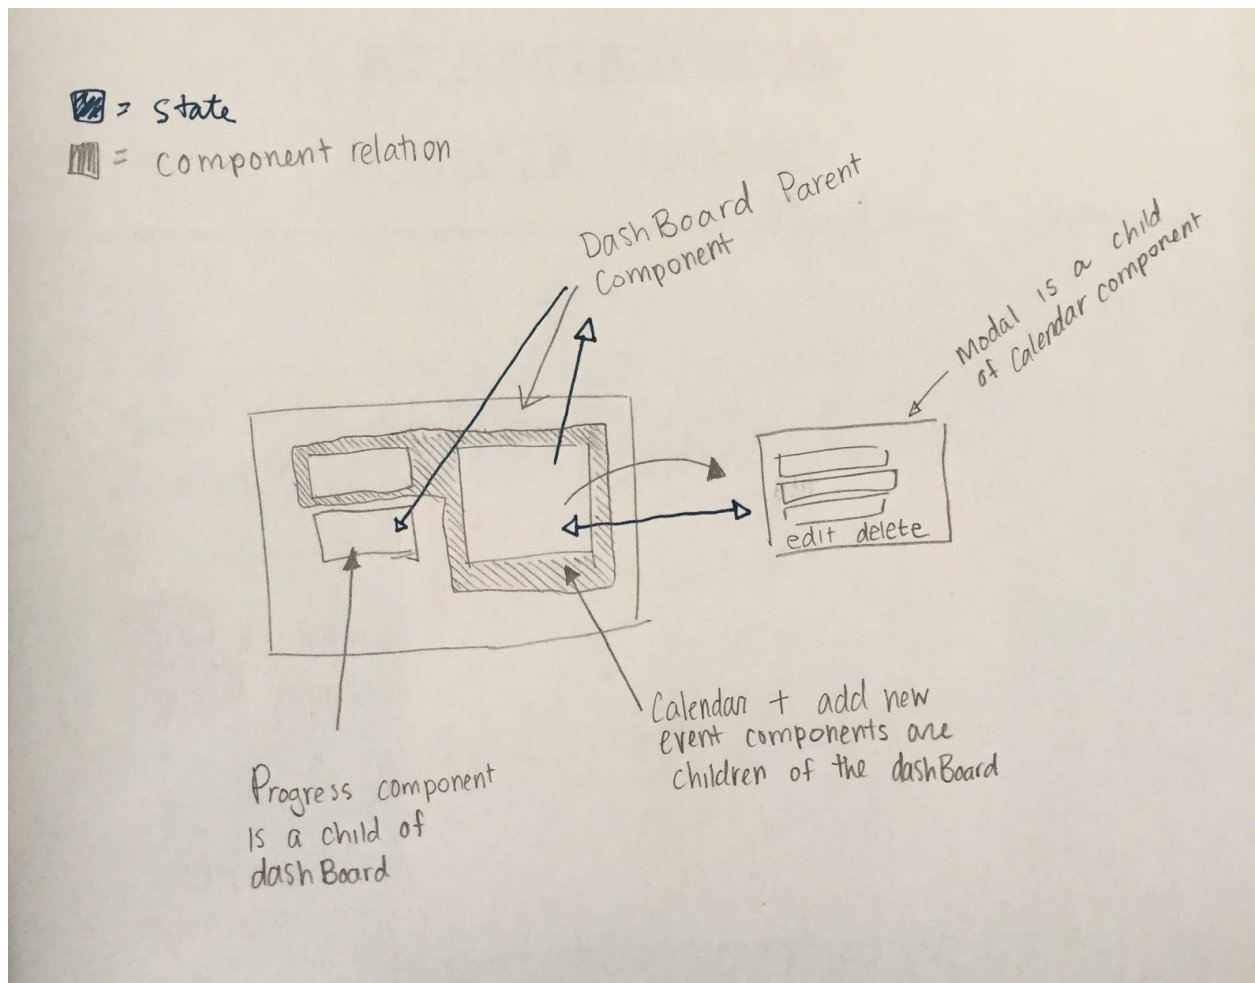 = state
= component relation
DashBoard Parent
Component
Modal is a child
of Calendar component
edit delete
Calendar + add new
event components are
children of the dashBoard
Progress component
is a child of
dashBoard